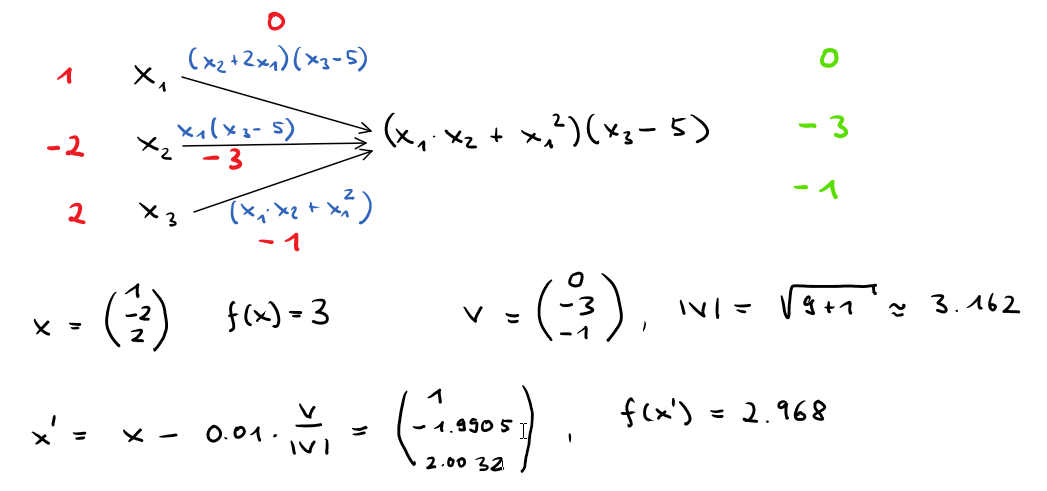 0
1 x₁ (x₂+2x₁)(x₃-5) 0
-2 x₂ x₁(x₃-5) -3 (x₁·x₂ + x₁²)(x₃-5) -3
2 x₃ (x₁·x₂ + x₁²) -1 -1
x = (1 -2 2) f(x) = 3 v = (0 -3 -1), |v| = √(9+1) ≈ 3.162
x' = x - 0.01 · v/|v| = (1 -1.9905 2.0032), f(x') = 2.968